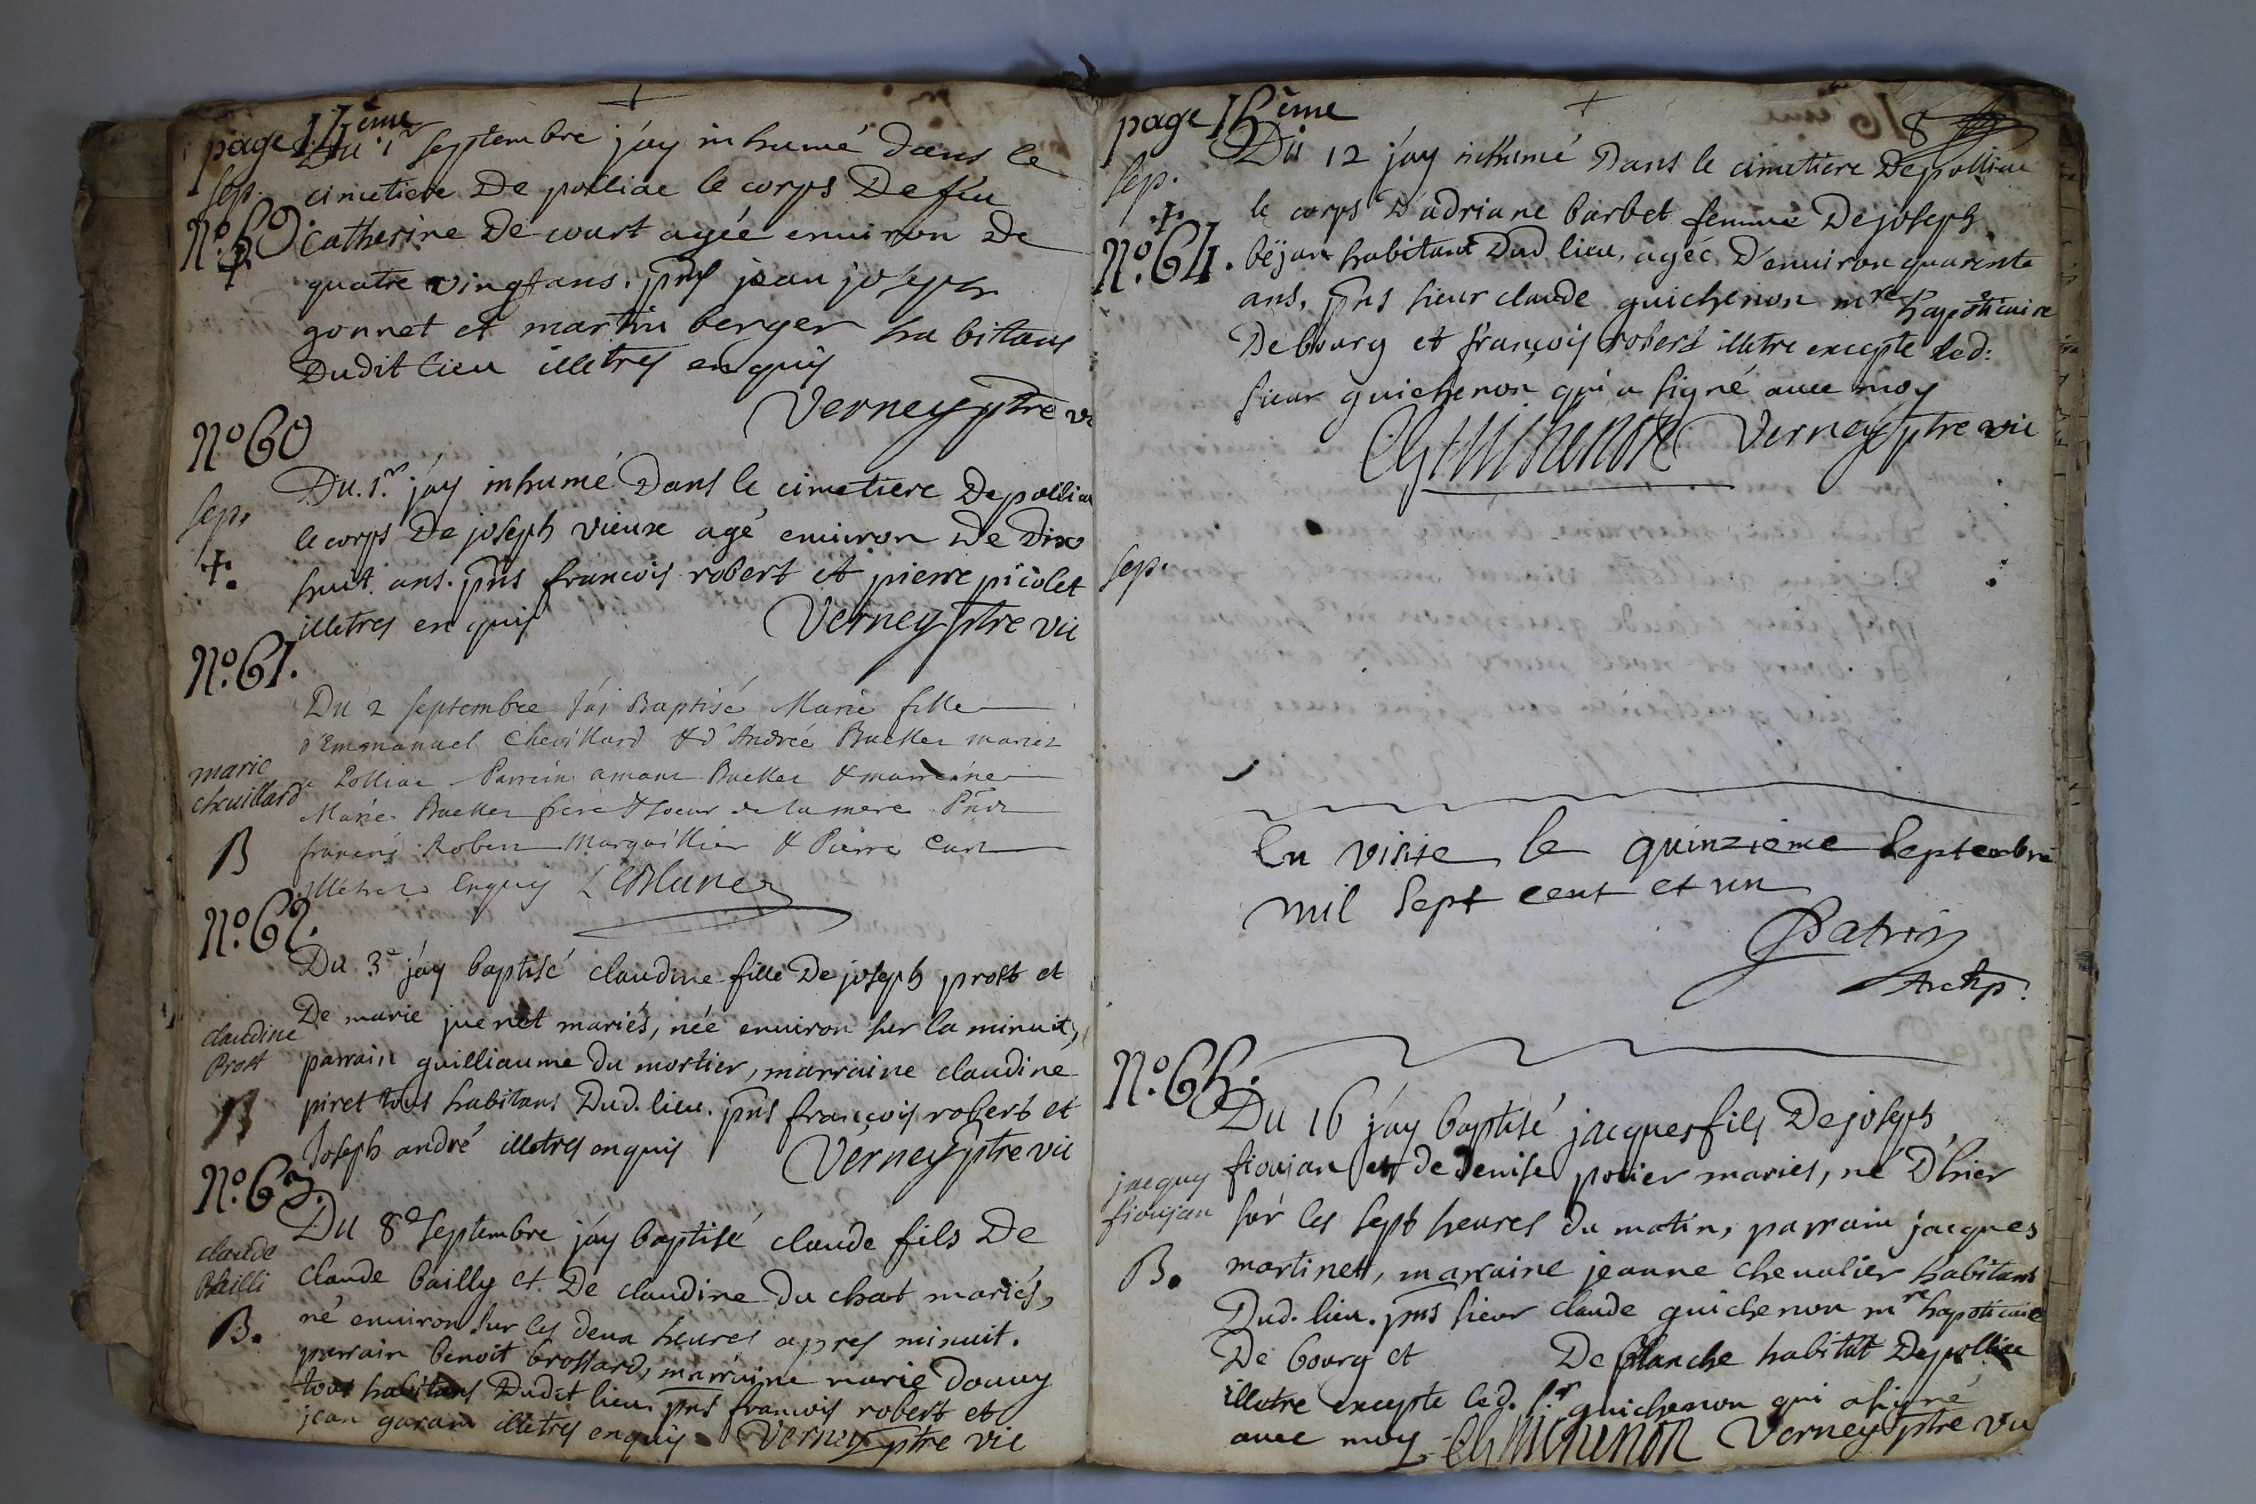 page 14ème
Du 1r septembre j'ay inhumé dans le
sep. cimetiere De polliac le corps De feu
N°.59. catherine De court agée environ De
quatre vingt ans. pns jean joseph
gonnet et martin berger habitans
Dudit lieu illetres enquis
Verney ptre vi
N°60
Du. 1.r j'ay inhumé Dans le cimetiere De polliac
sep. le corps De joseph vieux agé environ De Dix
huit ans. pns francois robert et pierre picolet
illetres enquis Verney ptre vic
N°.61.
Du 2 septembre J'ai Baptisé Marie fille
d'Emmanuel Chevillard & d'Andrée Buellet mariez
a Polliac Parrein amour Buellet & marreine
marie chevillard
Marie Buellet frere & soeur de la mere Pnts
B
françois Robert Marguillier & Pierre
illetrez Enquis Leblanc
N°.62.
Du 3e j'ay baptisé claudine fille De joseph prost et
De marie juenet mariés, née environ sur la minuit,
claudine Prost
parrain guilliaume du mortier, marraine claudine
piret tous habitans Dud. lieu. pns françois robert et
B
Joseph andré illetres enquis Verney ptre vic
N°.63.
Du 8e septembre j'ay baptisé claude fils De
claude Bailli
claude bailly et De claudine du chat mariés,
né environ sur les deux heures apres minuit.
B.
parrain benoit brossard, marraine marie Douvy
tous habitans Dudit lieu pns francois robert et
jean garam illetres enquis Verney ptre vic
page 15ème
Du 12 j'ay inhumé Dans le cimetiere De polliac
sep.
le corps D'adriane barbet femme De joseph
N°.64. bëjan habitant Dud lieu, agée D'environ quarente
ans, pns sieur claude guichenon mre hapoticaire
De bourg et françois robert illetre excepte led:
sieur guichenon qui a signé avec moy
CGuichenon Verney ptre vic
sep.
En visite le quinzieme septembre
mil sept cent et un
Patrin
Archip.
N°.65.
Du 16 j'ay baptisé jacques fils De joseph
jacques fioujan
fioujan et de Denise povier mariés, né D'hier
sur les sept heures du matin, parrain jacques
B.
martinet, marraine jeanne chevalier habitans
Dud. lieu. pns sieur claude guichenon mre hapoticaire
De bourg et De planche habitat De polliac
illetre excepte led. s.r guichenon qui a signé
avec moy CGuichenon Verney ptre vic